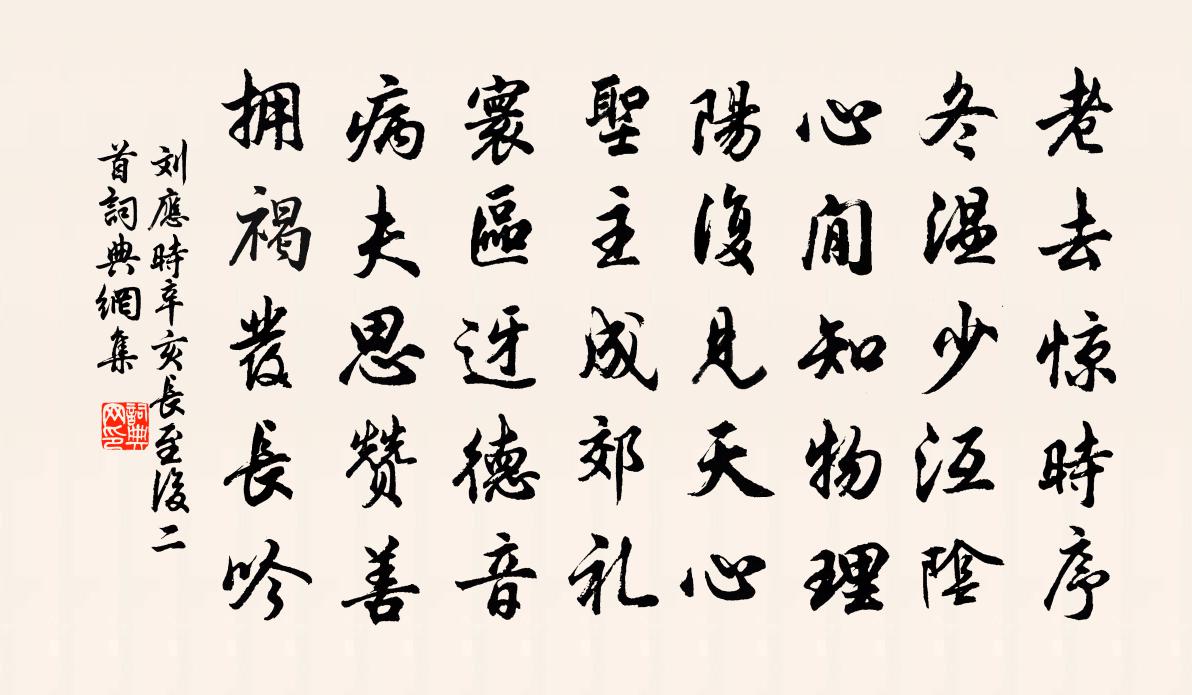 老去惊時序
冬温少沍陰
心閒知物理
陽復見天心
聖主成郊礼
寰區迓德音
病夫思赞善
拥褐發長吟
刘應時辛亥長至後二
首詞典網集
詞典网印